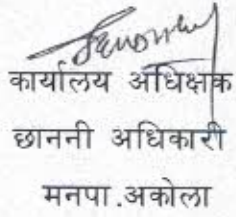 कार्यालय अधिक्षक
छाननी अधिकारी
मनपा.अकोला